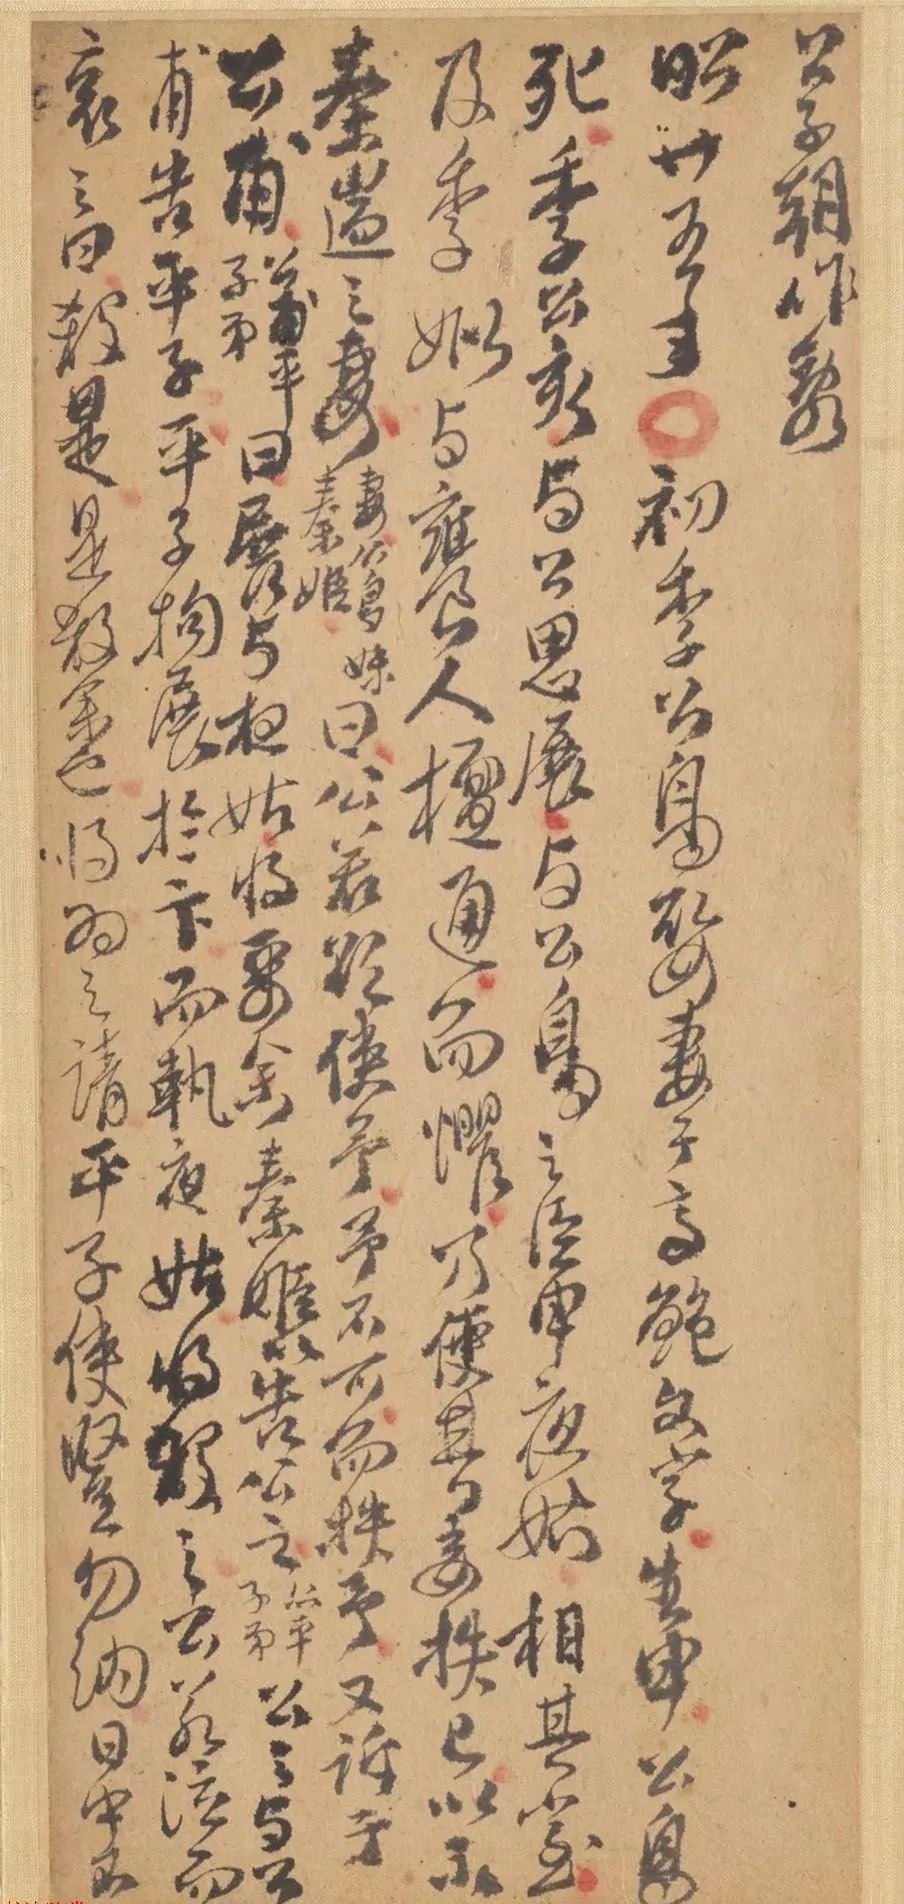 公子朝作乱
昭廿五年〇初季公鳥娶妻于齐鲍文子生申公鳥
死季公亥与公思展与公鳥之臣申夜姑相其室
及季姒与饔人檀通而懼乃使其妾抶己以示
秦遄之妻妻公鳥妹秦姬曰公若欲使予予不可而抶予又訴于
公甫公甫平子弟曰展与夜姑将要余秦姬以告公之公之平子弟公之与公
甫告平子平子拘展於卞而執夜姑将殺之公若泣而
哀之曰殺是是殺余也将为之請平子使豎勿納日中不